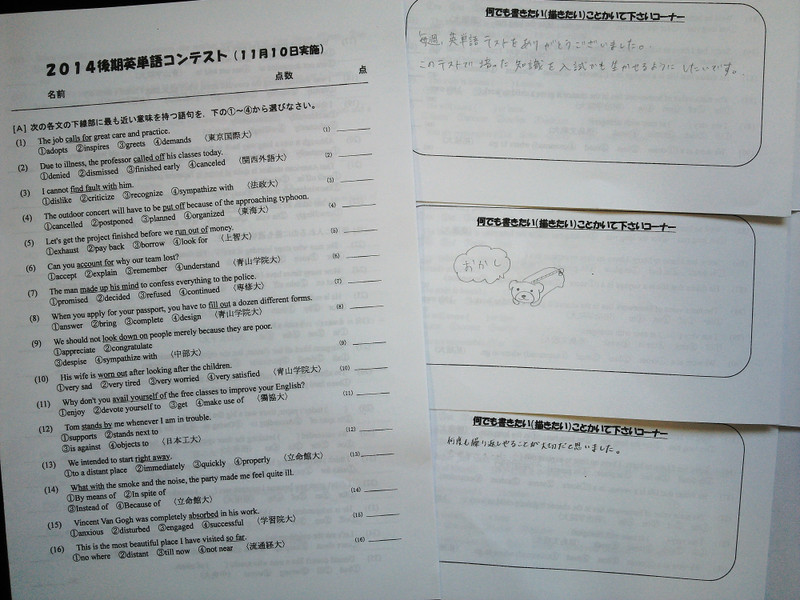 2014後期英単語コンテスト(11月10日実施)
名前 点数 点
[A] 次の各文の下線部に最も近い意味を持つ語句を、下の①~④から選びなさい。
(1) The job calls for great care and practice. (1)
①adopts ②inspires ③greets ④demands (東京国際大)
(2) Due to illness, the professor called off his classes today. (2)
①denied ②dismissed ③finished early ④canceled (関西外語大)
(3) I cannot find fault with him. (3)
①dislike ②criticize ③recognize ④sympathize with (法政大)
(4) The outdoor concert will have to be put off because of the approaching typhoon. (4)
①cancelled ②postponed ③planned ④organized (東海大)
(5) Let's get the project finished before we run out of money. (5)
①exhaust ②pay back ③borrow ④look for (上智大)
(6) Can you account for why our team lost? (6)
①accept ②explain ③remember ④understand (青山学院大)
(7) The man made up his mind to confess everything to the police. (7)
①promised ②decided ③refused ④continued (専修大)
(8) When you apply for your passport, you have to fill out a dozen different forms. (8)
①answer ②bring ③complete ④design (青山学院大)
(9) We should not look down on people merely because they are poor. (9)
①appreciate ②congratulate
③despise ④sympathize with (中部大)
(10) His wife is worn out after looking after the children. (10)
①very sad ②very tired ③very worried ④very satisfied (青山学院大)
(11) Why don't you avail yourself of the free classes to improve your English? (11)
①enjoy ②devote yourself to ③get ④make use of (獨協大)
(12) Tom stands by me whenever I am in trouble. (12)
①supports ②stands next to
③is against ④objects to (日本工大)
(13) We intended to start right away. (13)
①to a distant place ②immediately ③quickly ④properly (立命館大)
(14) What with the smoke and the noise, the party made me feel quite ill. (14)
①By means of ②In spite of
③Instead of ④Because of (立命館大)
(15) Vincent Van Gogh was completely absorbed in his work. (15)
①anxious ②disturbed ③engaged ④successful (学習院大)
(16) This is the most beautiful place I have visited so far. (16)
①no where ②distant ③till now ④not near (流通経大)
何でも書きたい(描きたい)ことかいて下さいコーナー
毎週、英単語テストをありがとうございました。
このテストで培った知識を入試でも生かせるようにしたいです。
何でも書きたい(描きたい)ことかいて下さいコーナー
おかし
何でも書きたい(描きたい)ことかいて下さいコーナー
何度も繰り返しやることが大切だと思いました。